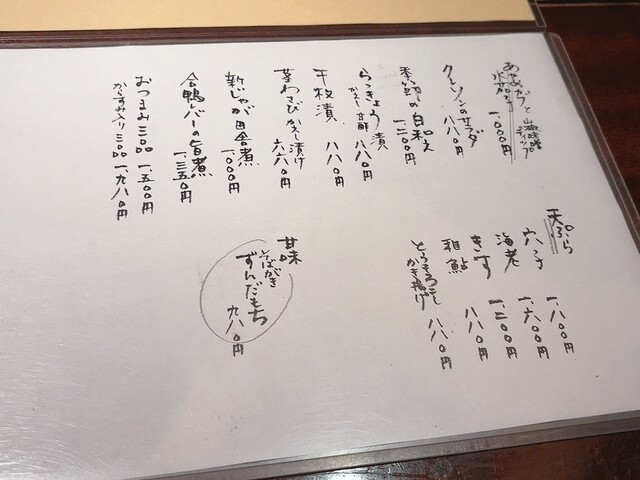 山椒味噌
ディップ
一、〇〇〇円
クレソンのサラダ 八八〇円
季節の白和え 一、二〇〇円
らっきょう漬
かえし 甘酢 八八〇円
千枚漬 八八〇円
茎わさびかえし漬け 六六〇円
新じゃが田舎煮 一、〇〇〇円
合鴨レバーの旨煮 一、三五〇円
おつまみ三品 一、五〇〇円
からすみ入り三品 一、九八〇円
天ぷら
穴子 一、八〇〇円
海老 一、六〇〇円
きす 一、二〇〇円
稚鮎 八八〇円
とうもろこし
かき揚げ 八八〇円
甘味
そばがき
ずんだもち
九八〇円